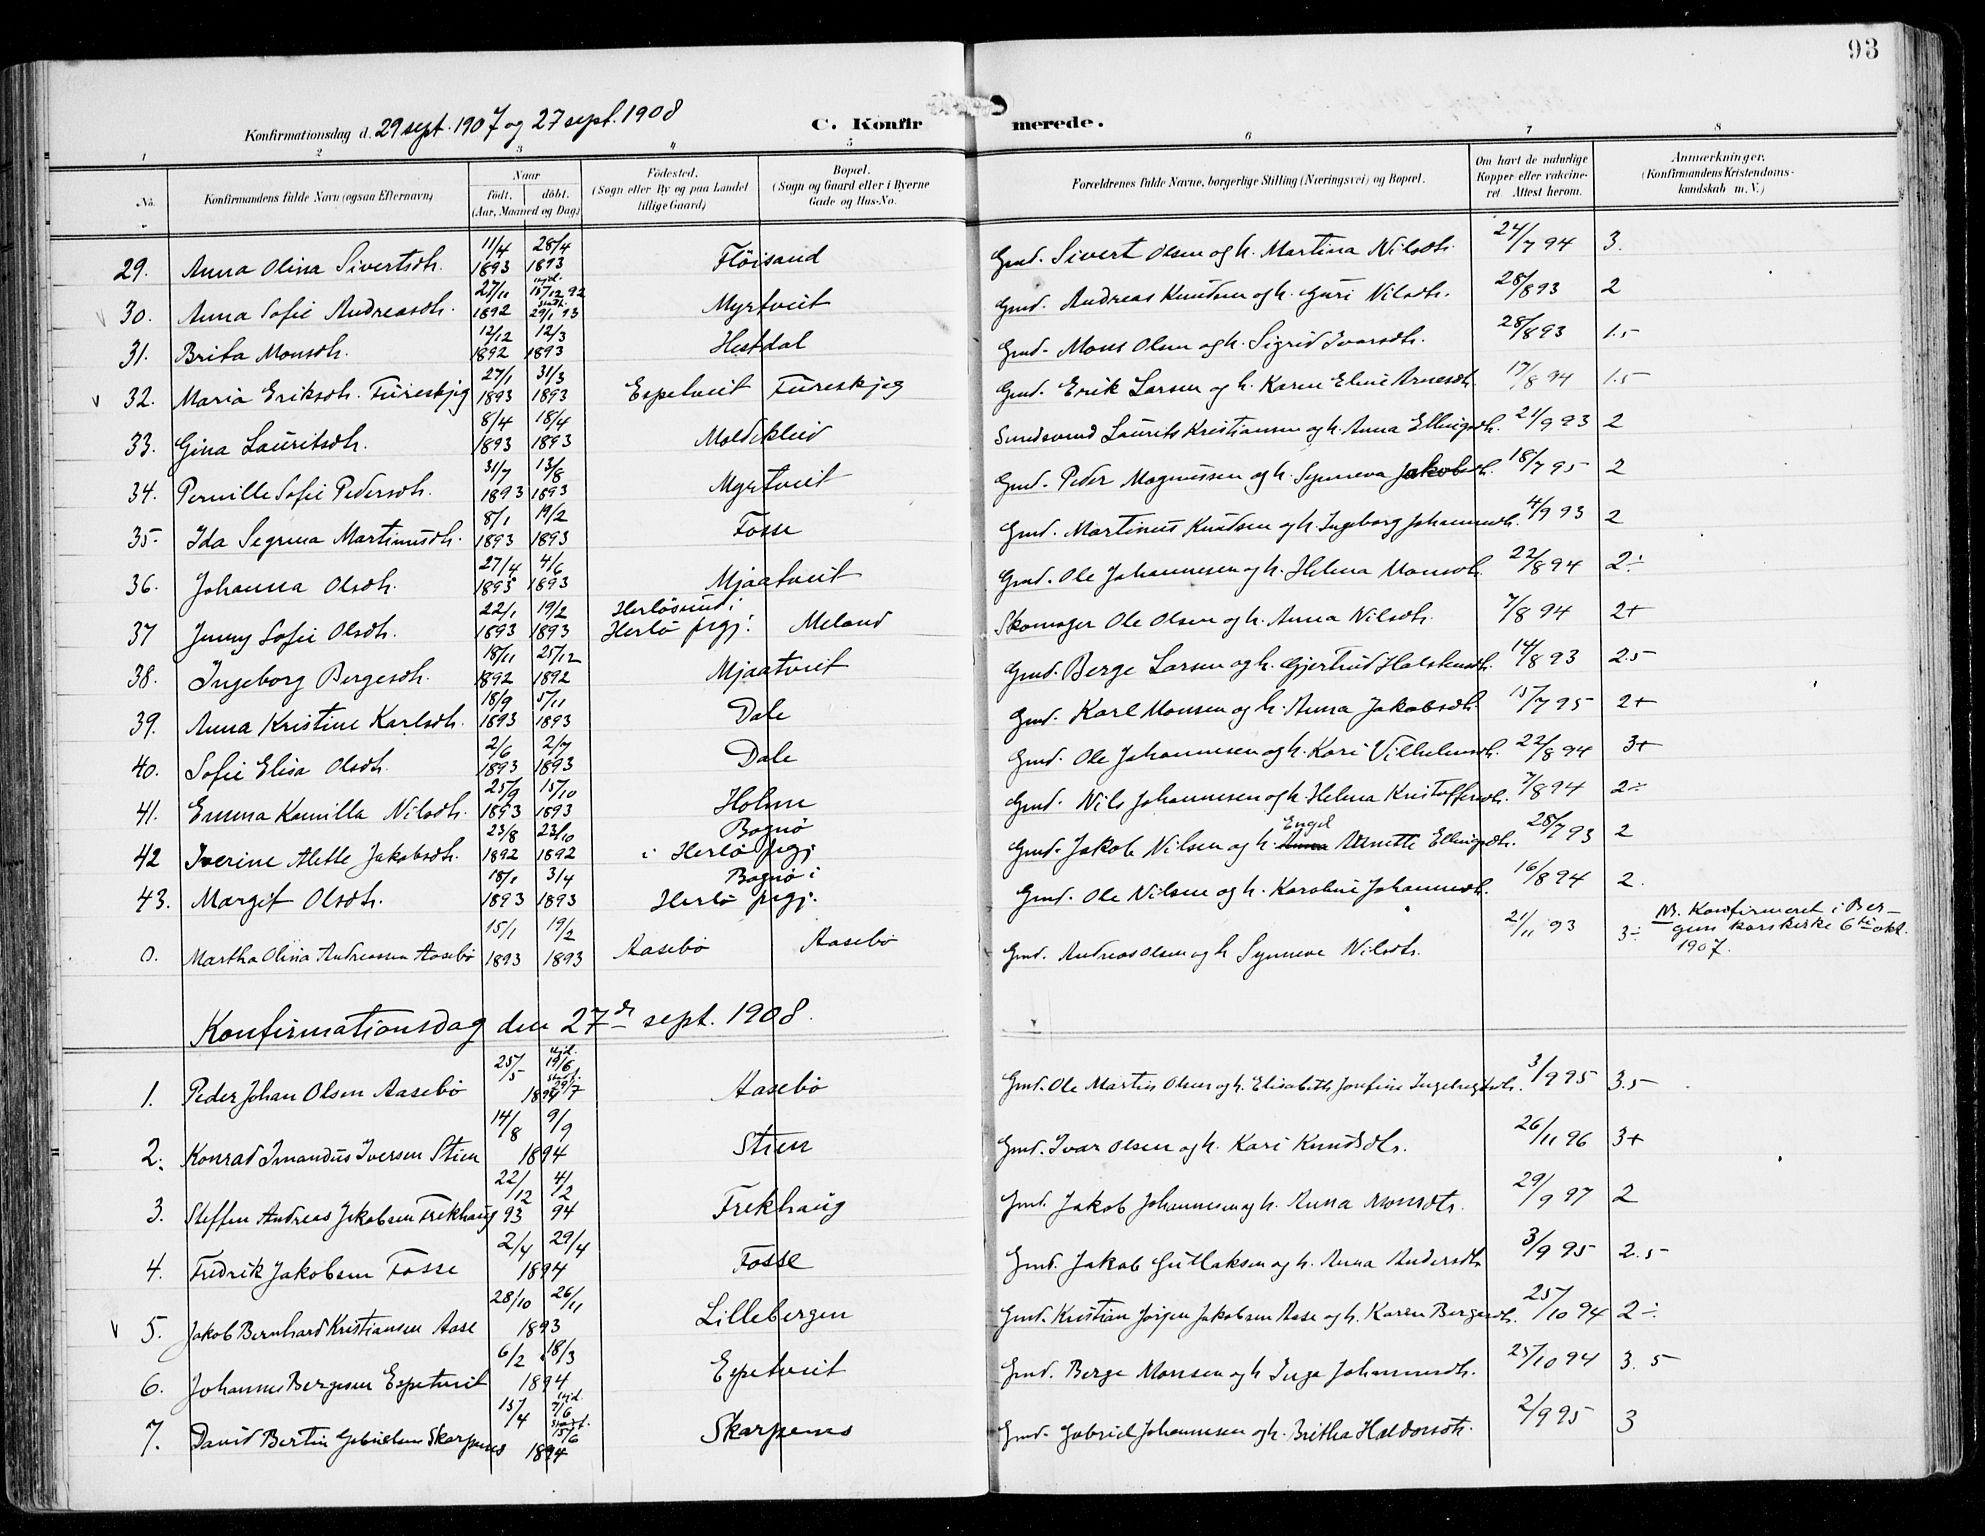 93
Konfirmationsdag d. 29 sept. 1907 og 27 sept. 1908
C. Konfirmerede.
1 2 3 4 5 6 7 8
No.
Konfirmandens fulde Navn (ogsaa Efternavn)
Naar
födt. döbt.
(Aar, Maaned og Dag)
Födested.
(Sogn eller By og paa Landet
tillige Gaard)
Bopæl.
(Sogn og Gaard eller i Byerne
Gade og Hus-No.
Forældrenes fulde Navne, borgerlige Stilling (Næringsvei) og Bopæl.
Om havt de naturlige
Kopper eller vakcine-
ret Attest herom.
Anmærkninger.
(Konfirmandens Kristendoms-
kundskab m. V.)
29. Anna Olina Sivertsdtr. 11/4 1893 28/4 1893 Flöisand Gmd. Sivert Olsen og h. Martina Nilsdtr. 24/7 94 3.
30. Anna Sofie Andreasdtr. 27/11 1892 hjd. 18/12 92 stadf. 29/1 93 Myrtveit Gmd. Andreas Knudsen og h. Guri Nilsdtr. 28/8 93 2
31. Brita Monsdtr. 12/12 1892 12/3 1893 Hestdal Gmd. Mons Olsen og h. Sigrid Ivarsdtr. 28/8 93 1.5
32. Maria Eriksdtr. Fureskjeg 27/1 1893 31/3 1893 Espetveit Fureskjeg Gmd. Erik Larsen og h. Karen Eline Arnesdtr. 17/8 94 1.5
33. Gina Lauritsdtr. 8/4 1893 18/4 1893 Moldekleiv Laurits Kristiansen og h. Anna Ellingsdtr. 21/9 93 2
34. Pernille Sofie Pedersdtr. 31/7 1893 13/8 1893 Myrtveit Gmd. Peder Magnussen og h. Synneva Jakobsdtr. 18/7 95 2
35. Ida Segrina Martinusdtr. 8/1 1893 19/2 1893 Fosse Gmd. Martinus Knudsen og h. Ingeborg Johannesdtr. 4/9 93 2
36. Johanna Olsdtr. 27/4 1893 4/6 1893 Mjaatveit Gmd. Ole Johannesen og h. Helena Monsdtr. 22/8 94 2÷
37 Jenny Sofie Olsdtr. 22/1 1893 19/2 1893 Herlösund i Herlö prgj. Meland Skomager Ole Olsen og h. Anna Nilsdtr. 7/8 94 2+
38. Ingeborg Bergesdtr. 18/11 1892 25/12 1892 Mjaatveit Gmd. Berge Larsen og h. Gjertrud Halstensdtr. 14/8 93 2.5
39. Anna Kristine Karlsdtr. 18/9 1893 5/11 1893 Dale Gmd. Karl Monsen og h. Anna Jakobsdtr. 15/7 95 2+
40. Sofie Elisa Olsdtr. 2/6 1893 2/7 1893 Dale Gmd. Ole Johannesen og h. Kari Vilhelmsdtr. 22/8 94 3+
41. Emma Kamilla Nilsdtr. 25/9 1893 15/10 1893 Holme Gmd. Nils Johannesen og h. Helena Kristoffersdtr. 7/8 94 2÷
42 Iverine Alette Jakobsdtr. 23/8 1892 23/10 1892 Bognö i Herlö prgj Gmd. Jakob Nilsen og h. Anna Engel Annette Ellingsdtr. 28/7 93 2
43. Margit Olsdtr. 18/1 1893 3/4 1893 Bognö i Herlö prgj. Gmd. Ole Nilsen og h. Karoline Johannesdtr. 16/8 94 2.
0. Martha Olina Andreassen Aasebö 15/1 1893 19/2 1893 Aasebö Aasebö Gmd. Andreas Olsen og h Synneve Nilsdtr. 21/11 93 3÷ NB. Konfirmeret i Ber-
gens korskirke 6te okt.
1907.
Konfirmationsdag den 27de sept. 1908.
1. Peder Johan Olsen Aasebö 25/5 hjd. 19/6 stadf. 29/7 1894 Aasebö Gmd. Ole Martin Olsen og h. Elisabeth Josefine Ingebrigtsdtr. 3/9 95 3.5
2. Konrad Imandus Iversen Stien 14/8 9/9 1894 Stien Gmd. Ivar Olsen og h. Kari Knudsdtr. 26/11 96 3+
3. Steffen Andreas Jakobsen Frekhaug 22/12 93 4/2 94 Frekhaug Gmd. Jakob Johannesen og h. Anna Monsdtr. 29/9 97 2
4. Fredrik Jakobsen Fosse 2/4 29/4 1894 Fosse Gmd. Jakob Gullaksen og h. Anna Andersdtr 3/9 95 2.5
5. Jakob Bernhard Kristiansen Aase 28/10 26/11 1893 Lillebergen Gmd. Kristian Jörgen Jakobsen Aase og h. Karen Bergesdtr. 25/10 94 2÷
6. Johannes Bergesen Espetveit 6/2 18/3 1894 Espetveit Gmd. Berge Monsen og h Inga Johannesdtr. 25/10 94 3.5
7. David Bertin Gabrielsen Skarpenes 15/4 hjd. 7/6 stadf. 15/6 1894 Skarpenes Gmd. Gabriel Johannesen og h. Britha Haldorsdtr. 2/9 95 3